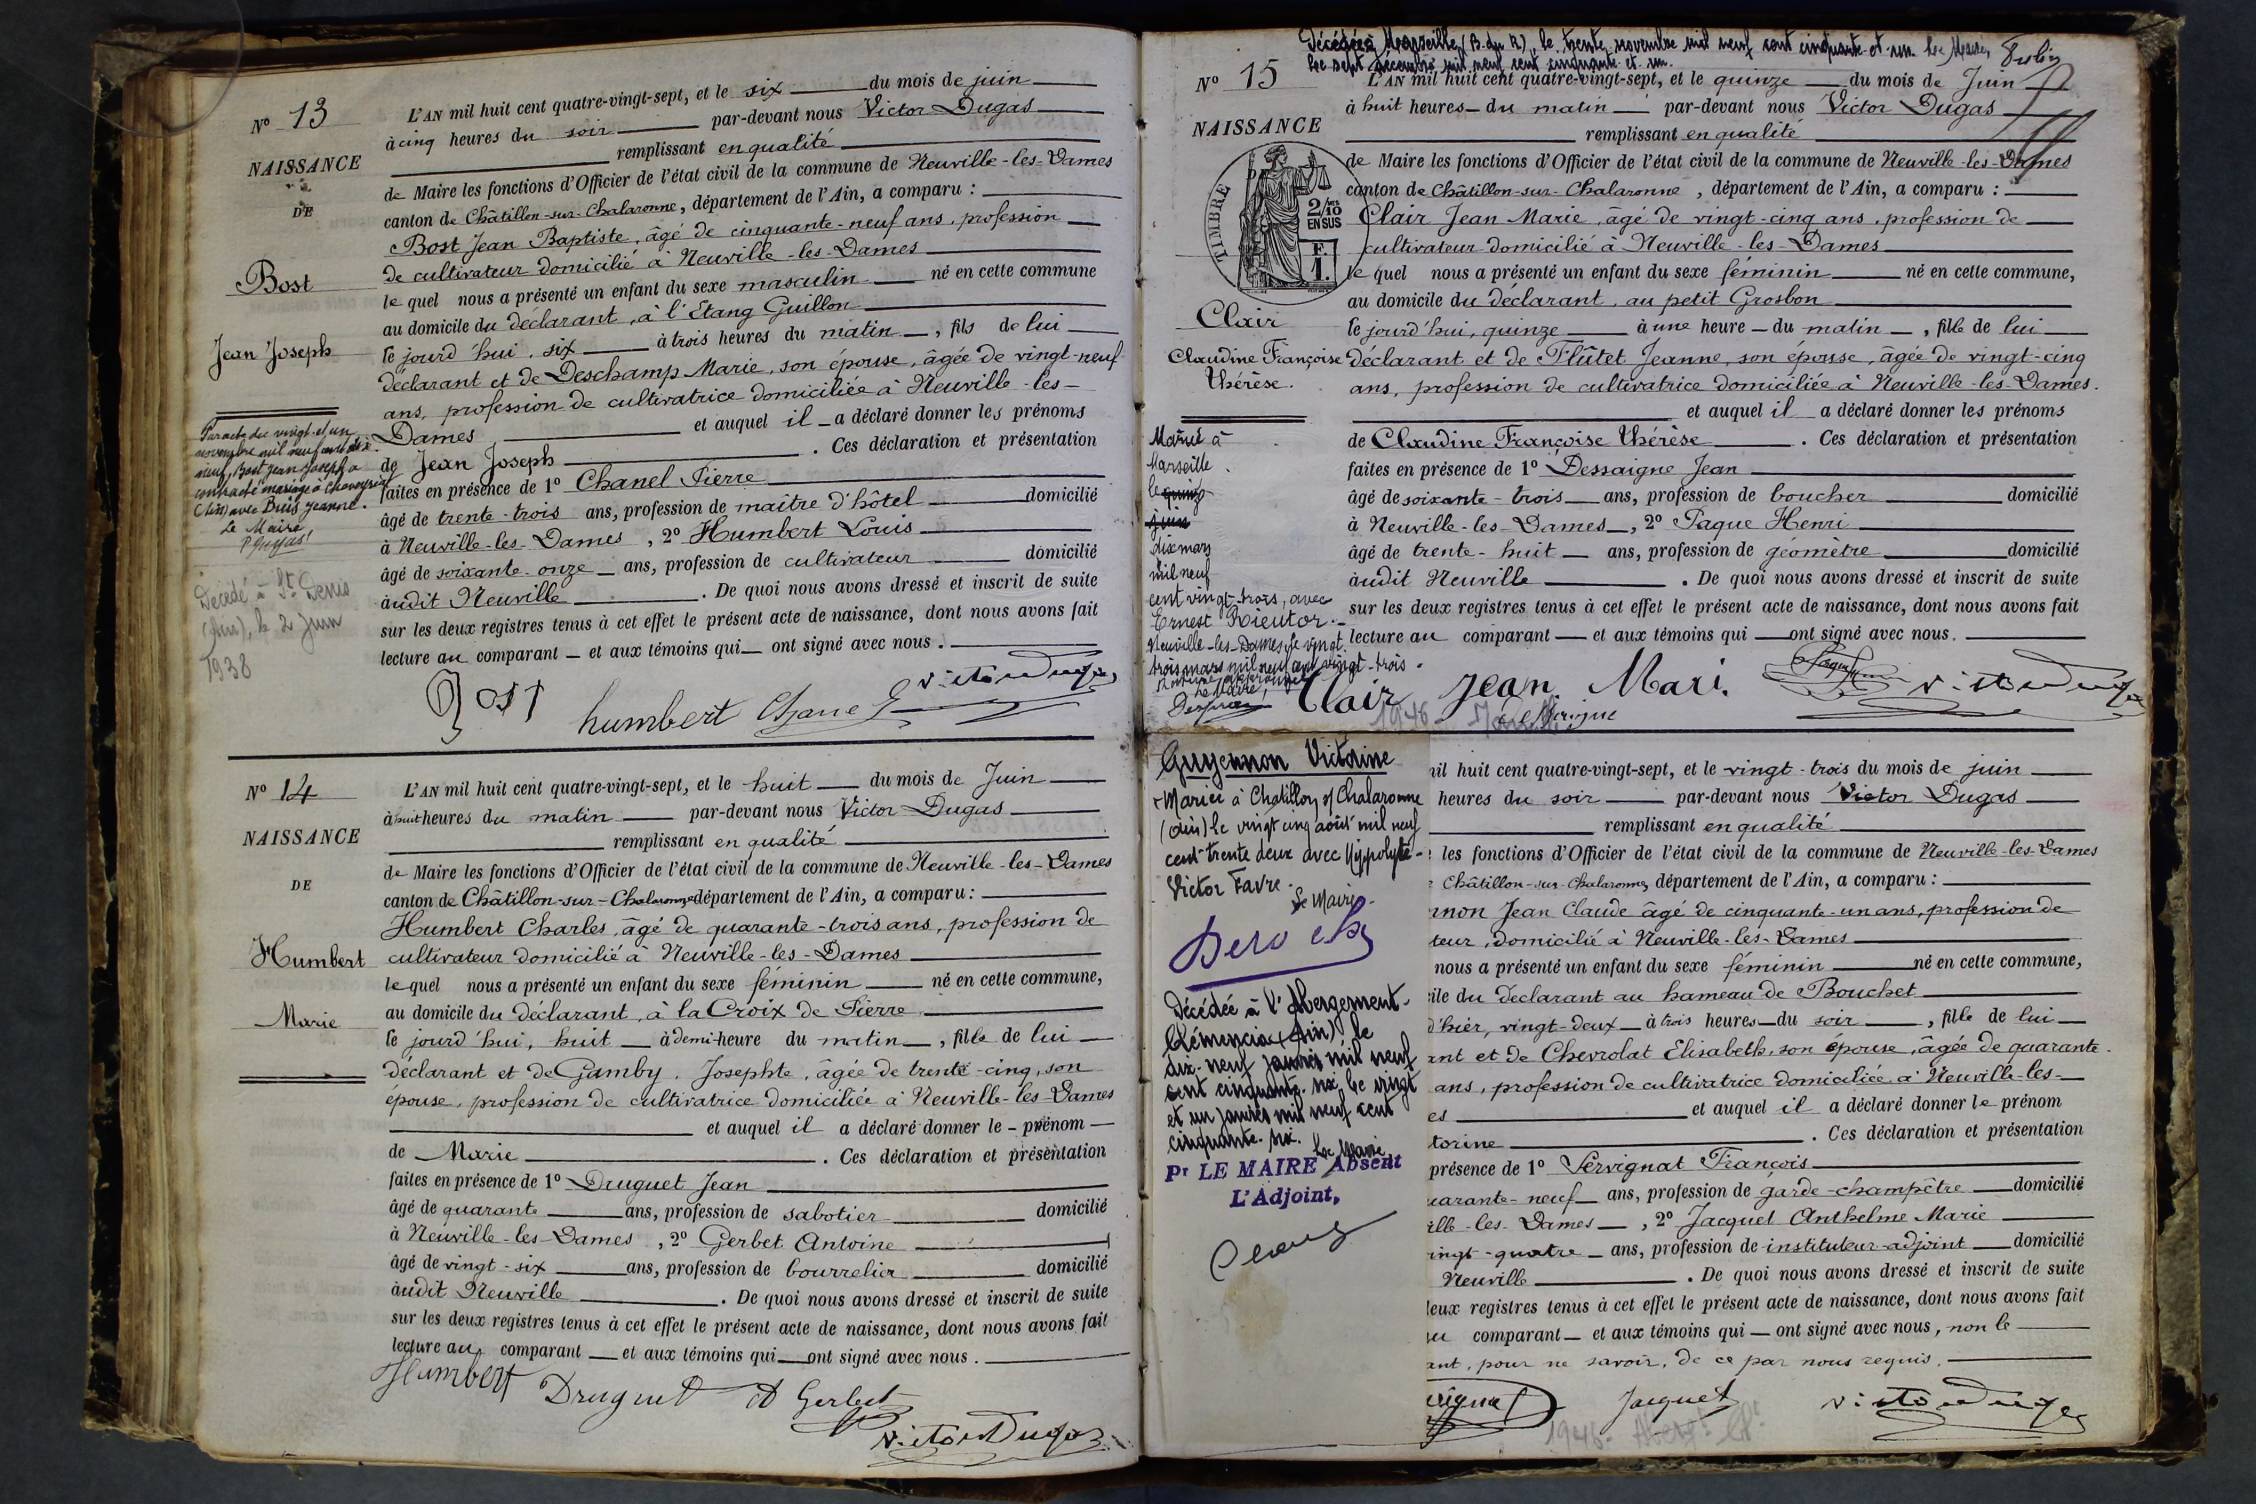 N° 13
NAISSANCE
DE
Bost
Jean Joseph
Par acte du vingt-et-un
novembre mil neuf cent dix-
neuf, Bost Jean Joseph a
contracté mariage à Chaveyriat
(Ain) avec Buis Jeanne.
Le Maire,
Décédé à St Denis
(Ain), le 2 Juin
1938
L'AN mil huit cent quatre-vingt-sept, et le six du mois de juin
à cinq heures du soir par-devant nous Victor Dugas
remplissant en qualité
de Maire les fonctions d'Officier de l'état civil de la commune de Neuville-les-Dames
canton de Châtillon-sur-Chalaronne, département de l'Ain, a comparu :
Bost Jean Baptiste, âgé de cinquante-neuf ans, profession
de cultivateur domicilié à Neuville-les-Dames
le quel nous a présenté un enfant du sexe masculin né en cette commune
au domicile du déclarant, à l'Etang Guillon
le jourd'hui, six à trois heures du matin, fils de lui
déclarant et de Deschamp Marie, son épouse, âgée de vingt-neuf
ans, profession de cultivatrice domiciliée à Neuville-les-
Dames et auquel il a déclaré donner les prénoms
de Jean Joseph . Ces déclaration et présentation
faites en présence de 1° Chanel Pierre
âgé de trente-trois ans, profession de maître d'hôtel domicilié
à Neuville-les-Dames, 2° Humbert Louis
âgé de soixante-onze ans, profession de cultivateur domicilié
audit Neuville . De quoi nous avons dressé et inscrit de suite
sur les deux registres tenus à cet effet le présent acte de naissance, dont nous avons fait
lecture au comparant et aux témoins qui ont signé avec nous.
Bost humbert Chanel Victor Dugas
N° 14
NAISSANCE
DE
Humbert
Marie
L'AN mil huit cent quatre-vingt-sept, et le huit du mois de Juin
à huit heures du matin par-devant nous Victor Dugas
remplissant en qualité
de Maire les fonctions d'Officier de l'état civil de la commune de Neuville-les-Dames
canton de Châtillon-sur-Chalaronne, département de l'Ain, a comparu :
Humbert Charles, âgé de quarante-trois ans, profession de
cultivateur domicilié à Neuville-les-Dames
le quel nous a présenté un enfant du sexe féminin né en cette commune,
au domicile du déclarant, à la Croix de Pierre
le jourd'hui, huit à demi-heure du matin, fille de lui
déclarant et de Gamby, Josephte, âgée de trente-cinq, son
épouse, profession de cultivatrice domiciliée à Neuville-les-Dames
et auquel il a déclaré donner le prénom
de Marie . Ces déclaration et présentation
faites en présence de 1° Druguet Jean
âgé de quarante ans, profession de sabotier domicilié
à Neuville-les-Dames, 2° Gerbet Antoine
âgé de vingt-six ans, profession de bourrelier domicilié
audit Neuville . De quoi nous avons dressé et inscrit de suite
sur les deux registres tenus à cet effet le présent acte de naissance, dont nous avons fait
lecture au comparant et aux témoins qui ont signé avec nous.
Humbert Druguet A Gerbet
Victor Dugas
Décédée à Marseille (B. du R), le trente novembre mil neuf cent cinquante et un. Le Maire,
Le sept décembre mil neuf cent cinquante et un.
N° 15
NAISSANCE
TIMBRE
2/10 EN SUS
F. 1.
Clair
Claudine Françoise
Thérèse.
Marié à
Marseille
le quinze
juin
dix mars
mil neuf
cent vingt-trois, avec
Ernest Rieutor.
Neuville-les-Dames, le vingt-
trois mars mil neuf cent vingt-trois.
Le Maire,
L'AN mil huit cent quatre-vingt-sept, et le quinze du mois de Juin
à huit heures du matin par-devant nous Victor Dugas
remplissant en qualité
de Maire les fonctions d'Officier de l'état civil de la commune de Neuville-les-Dames
canton de Châtillon-sur-Chalaronne, département de l'Ain, a comparu :
Clair Jean Marie, âgé de vingt-cinq ans, profession de
cultivateur domicilié à Neuville-les-Dames
le quel nous a présenté un enfant du sexe féminin né en cette commune,
au domicile du déclarant, au petit Grosbon
le jourd'hui, quinze à une heure du matin, fille de lui
déclarant et de Flûtet Jeanne, son épouse, âgée de vingt-cinq
ans, profession de cultivatrice domiciliée à Neuville-les-Dames.
et auquel il a déclaré donner les prénoms
de Claudine Françoise Thérèse . Ces déclaration et présentation
faites en présence de 1° Dessaigne Jean
âgé de soixante-trois ans, profession de boucher domicilié
à Neuville-les-Dames, 2° Paque Henri
âgé de trente-huit ans, profession de géomètre domicilié
audit Neuville . De quoi nous avons dressé et inscrit de suite
sur les deux registres tenus à cet effet le présent acte de naissance, dont nous avons fait
lecture au comparant et aux témoins qui ont signé avec nous.
Clair Jean Mari. Victor Dugas
1946
Guyennon Victorine
Mariée à Chatillon s/ Chalaronne
(Ain) le vingt cinq août mil neuf
cent-trente deux avec Hyppolyte-
Victor Favre.
Le Maire.
Décédée à l'Abergement-
Clémenciat (Ain) le
dix-neuf janvier mil neuf
cent cinquante-six. Le vingt
et un janvier mil neuf cent
cinquante-six. Le Maire
Pr LE MAIRE Absent
L'Adjoint,
mil huit cent quatre-vingt-sept, et le vingt-trois du mois de juin
heures du soir par-devant nous Victor Dugas
remplissant en qualité
les fonctions d'Officier de l'état civil de la commune de Neuville-les-Dames
Châtillon-sur-Chalaronne, département de l'Ain, a comparu :
nnon Jean Claude âgé de cinquante-un ans, profession de
teur, domicilié à Neuville-les-Dames
nous a présenté un enfant du sexe féminin né en cette commune,
ile du déclarant au hameau de Bouchet
d'hier, vingt-deux à trois heures du soir, fille de lui
ant et de Chevrolat Elisabeth, son épouse, âgée de quarante.
ans, profession de cultivatrice domiciliée à Neuville-les-
es et auquel il a déclaré donner le prénom
torine . Ces déclaration et présentation
présence de 1° Servignat François
uarante-neuf ans, profession de garde-champêtre domicilié
ille-les-Dames, 2° Jacquet Anthelme Marie
ingt-quatre ans, profession de instituteur-adjoint domicilié
Neuville . De quoi nous avons dressé et inscrit de suite
deux registres tenus à cet effet le présent acte de naissance, dont nous avons fait
au comparant et aux témoins qui ont signé avec nous, non le
ant, pour ne savoir, de ce par nous requis.
Jacquet Victor Dugas
1946